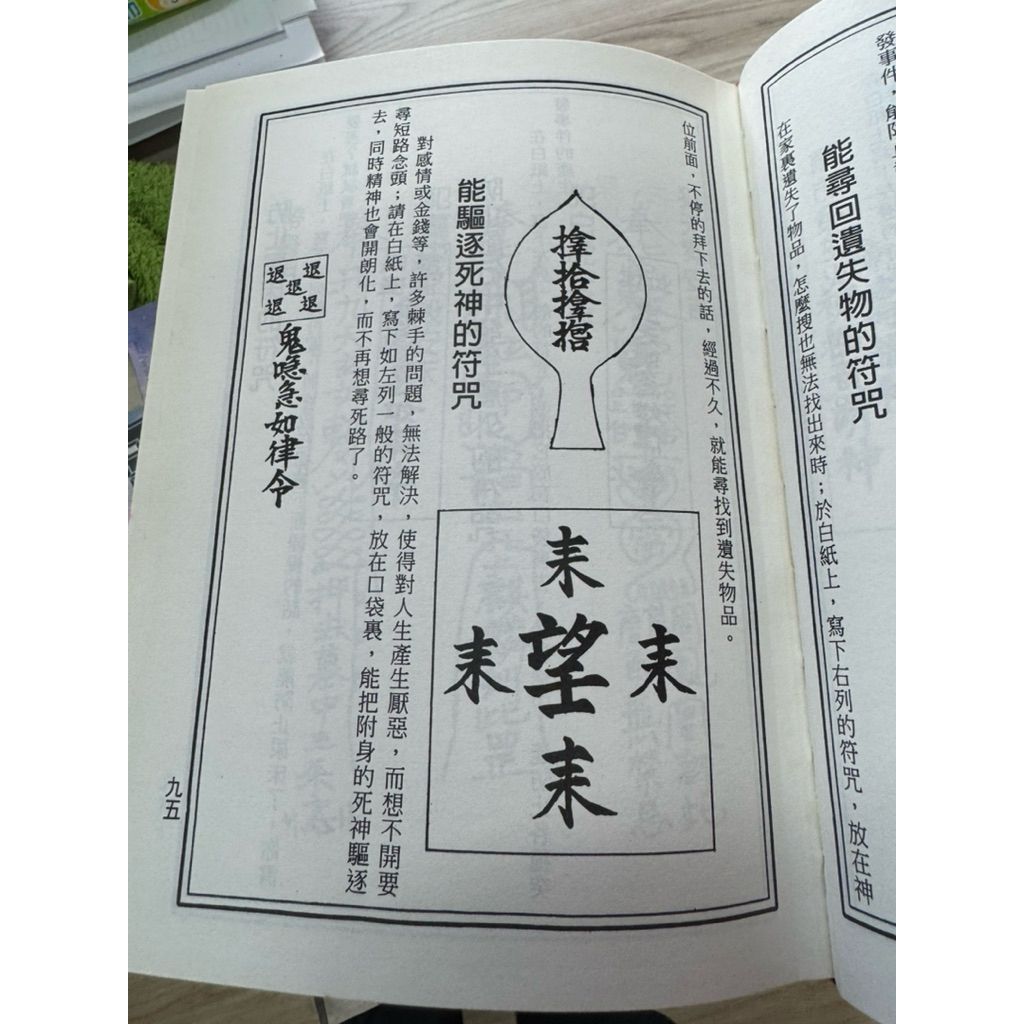 能尋回遺失物的符咒
在家裏遺失了物品，怎麼搜也無法找出來時；於白紙上，寫下右列的符咒，放在神
位前面，不停的拜下去的話，經過不久，就能尋找到遺失物品。
耒
耒望耒
耒
能驅逐死神的符咒
對感情或金錢等，許多棘手的問題，無法解決，使得對人生產生厭惡，而想不開要
尋短路念頭；請在白紙上，寫下如左列一般的符咒，放在口袋裏，能把附身的死神驅逐
去，同時精神也會開朗化，而不再想尋死路了。
退退
退
退退
鬼急如律令
九五